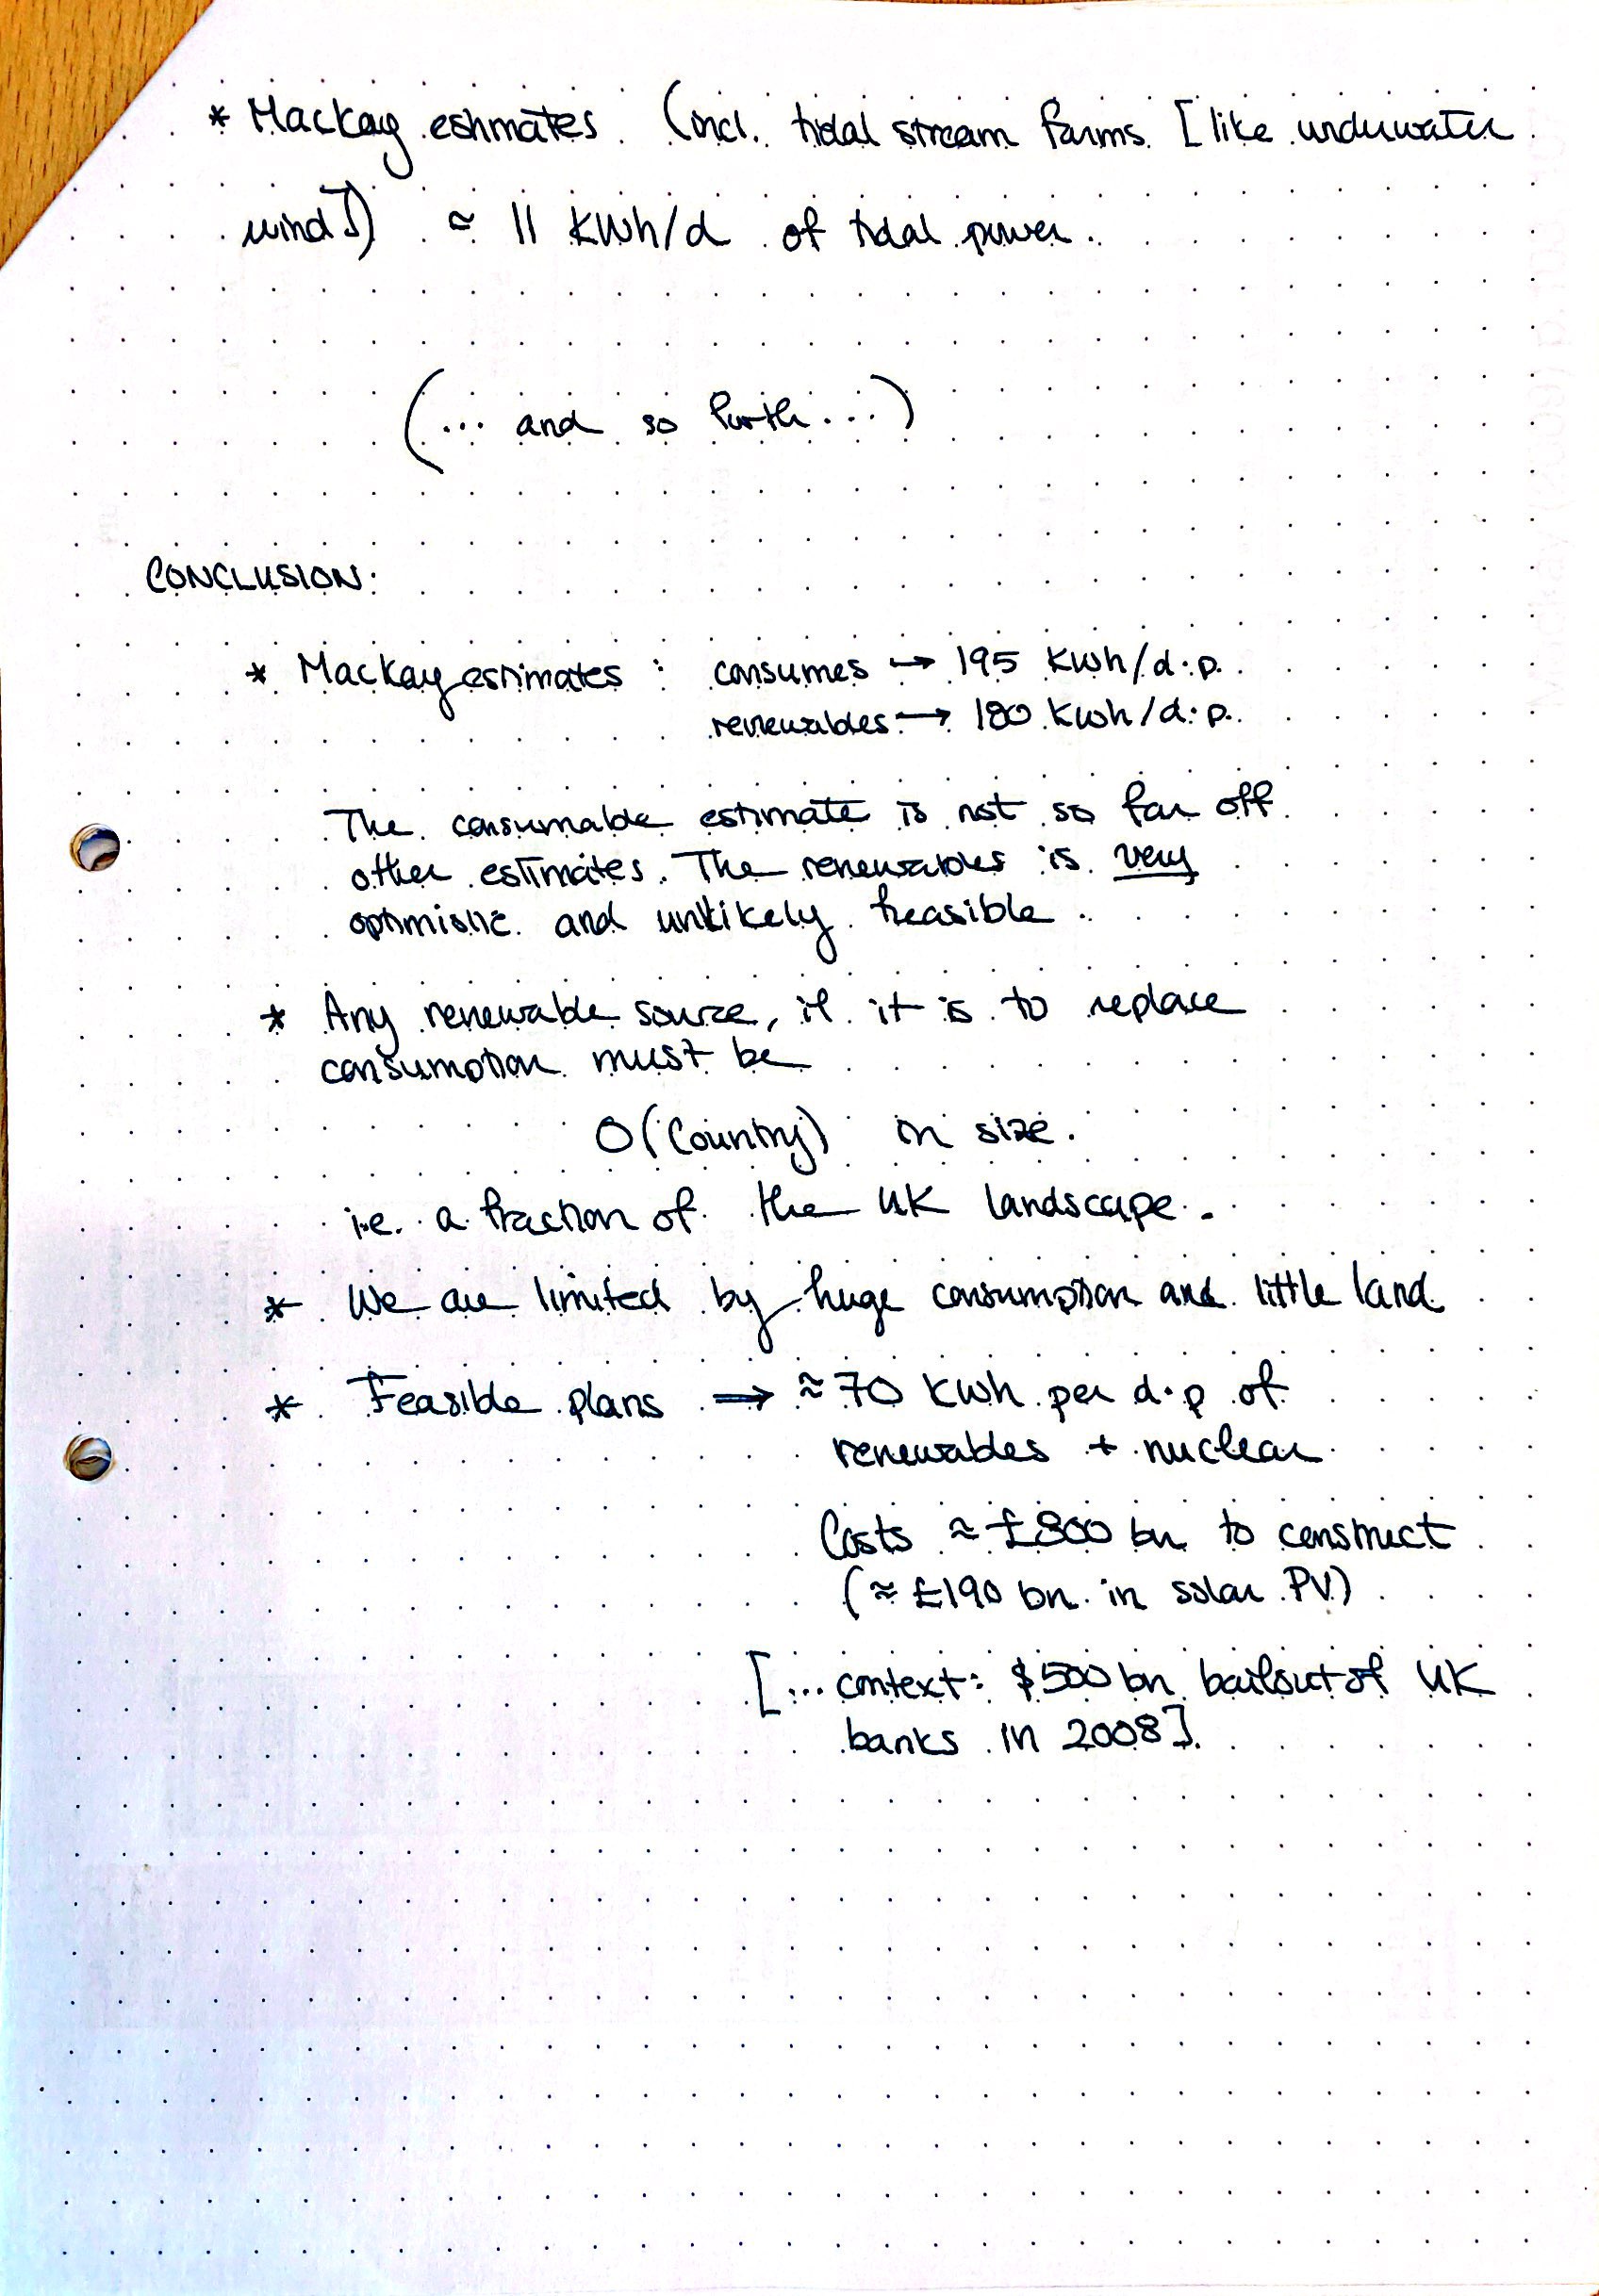 * Mackay estimates (incl. tidal stream farms [like underwater
wind]) ≈ 11 kWh/d of tidal power.
(... and so forth...)
CONCLUSION:
* Mackay estimates : consumes → 195 kWh/d.p.
renewables → 180 kWh/d.p.
The consumable estimate is not so far off
other estimates. The renewables is very
optimistic and unlikely feasible.
* Any renewable source, if it is to replace
consumption must be
O(Country) in size.
i.e. a fraction of the UK landscape.
* We are limited by huge consumption and little land
* Feasible plans → ≈ 70 kWh per d.p of
renewables + nuclear
Costs ≈ £800 bn to construct
(≈ £190 bn in solar PV)
[... context: $500 bn bailout of UK
banks in 2008].